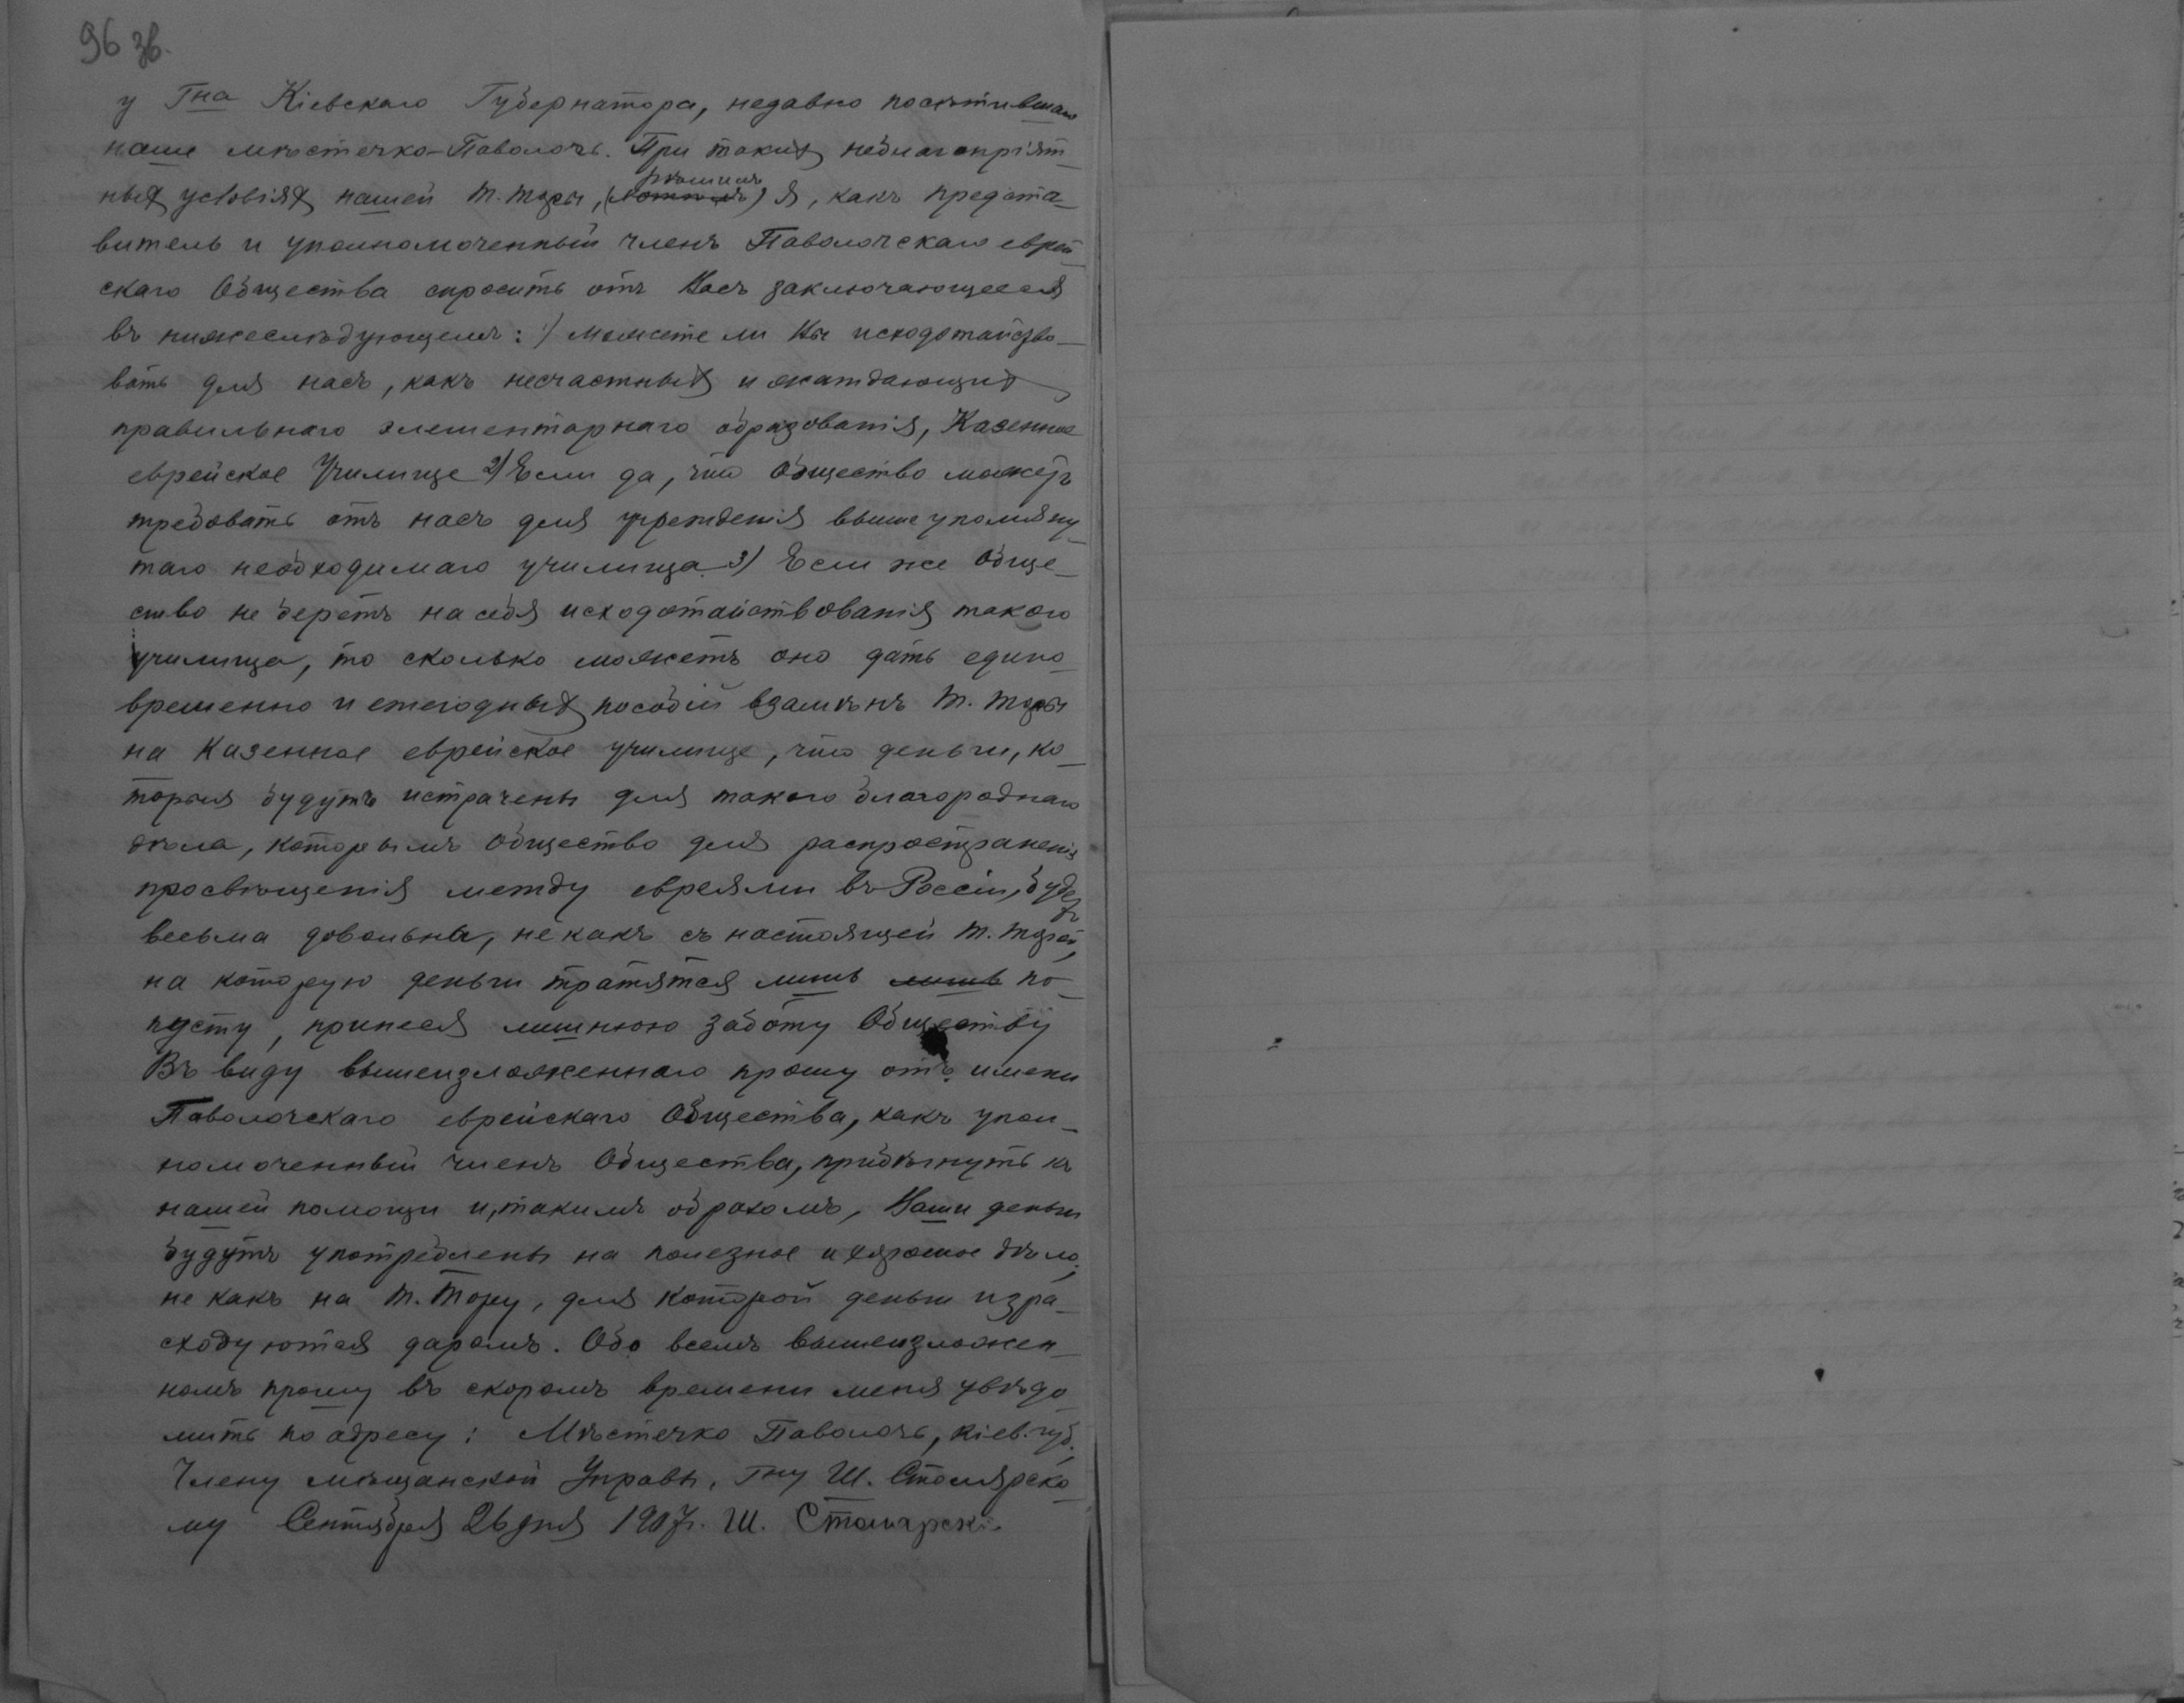 96 зв.
у Гна Кіевскаго Губернатора, недавно посѣтившаго
наше мѣстечко-Паволочь. При такихъ неблагопріят-
ныхъ условіяхъ нашей Т. Торы, рѣшилъ я, какъ предста-
витель и уполномоченный членъ Паволочскаго еврей-
скаго Общества спросить отъ Васъ заключающееся
въ нижеслѣдующемъ: 1) можете ли Вы исходотайство-
вать для насъ, какъ несчастныхъ и жаждающихъ
правильнаго элементарнаго образованія, Казенное
еврейское Училище 2) Если да, что Общество можетъ
требовать отъ насъ для учрежденія вышеупомяну-
таго необходимаго училища. 3) Если же Обще-
ство не беретъ на себя исходотайствованія такого
училища, то сколько можетъ оно дать едино-
временно и ежегодныхъ пособій взамѣнъ Т. Торы
на Казенное еврейское училище, что деньги, ко-
торыя будутъ истрачены для такого благороднаго
дѣла, которымъ Общество для распространенія
просвѣщенія между евреями въ Россіи, будетъ
весьма довольны, не какъ съ настоящей Т. Торой,
на которую деньги тратятся лишь лишь по-
пусту, принося лишнюю заботу Обществу
Въ виду вышеизложеннаго прошу отъ имени
Паволочскаго еврейскаго Общества, какъ упол-
номоченный членъ Общества, прибѣгнуть къ
нашей помощи и, такимъ образомъ, Ваши деньги
будутъ употреблены на полезное и хорошое дѣло,
не какъ на Т. Тору, для которой деньги изра-
сходуются даромъ. Обо всемъ вышеизложен-
номъ прошу въ скоромъ времени меня увѣдо-
мить по адресу: Мѣстечко Паволочь, Кіев. губ.,
Члену мѣщанской Управы, Гну Ш. Столярско-
му Сентября 26 дня 1907г. Ш. Столярскі